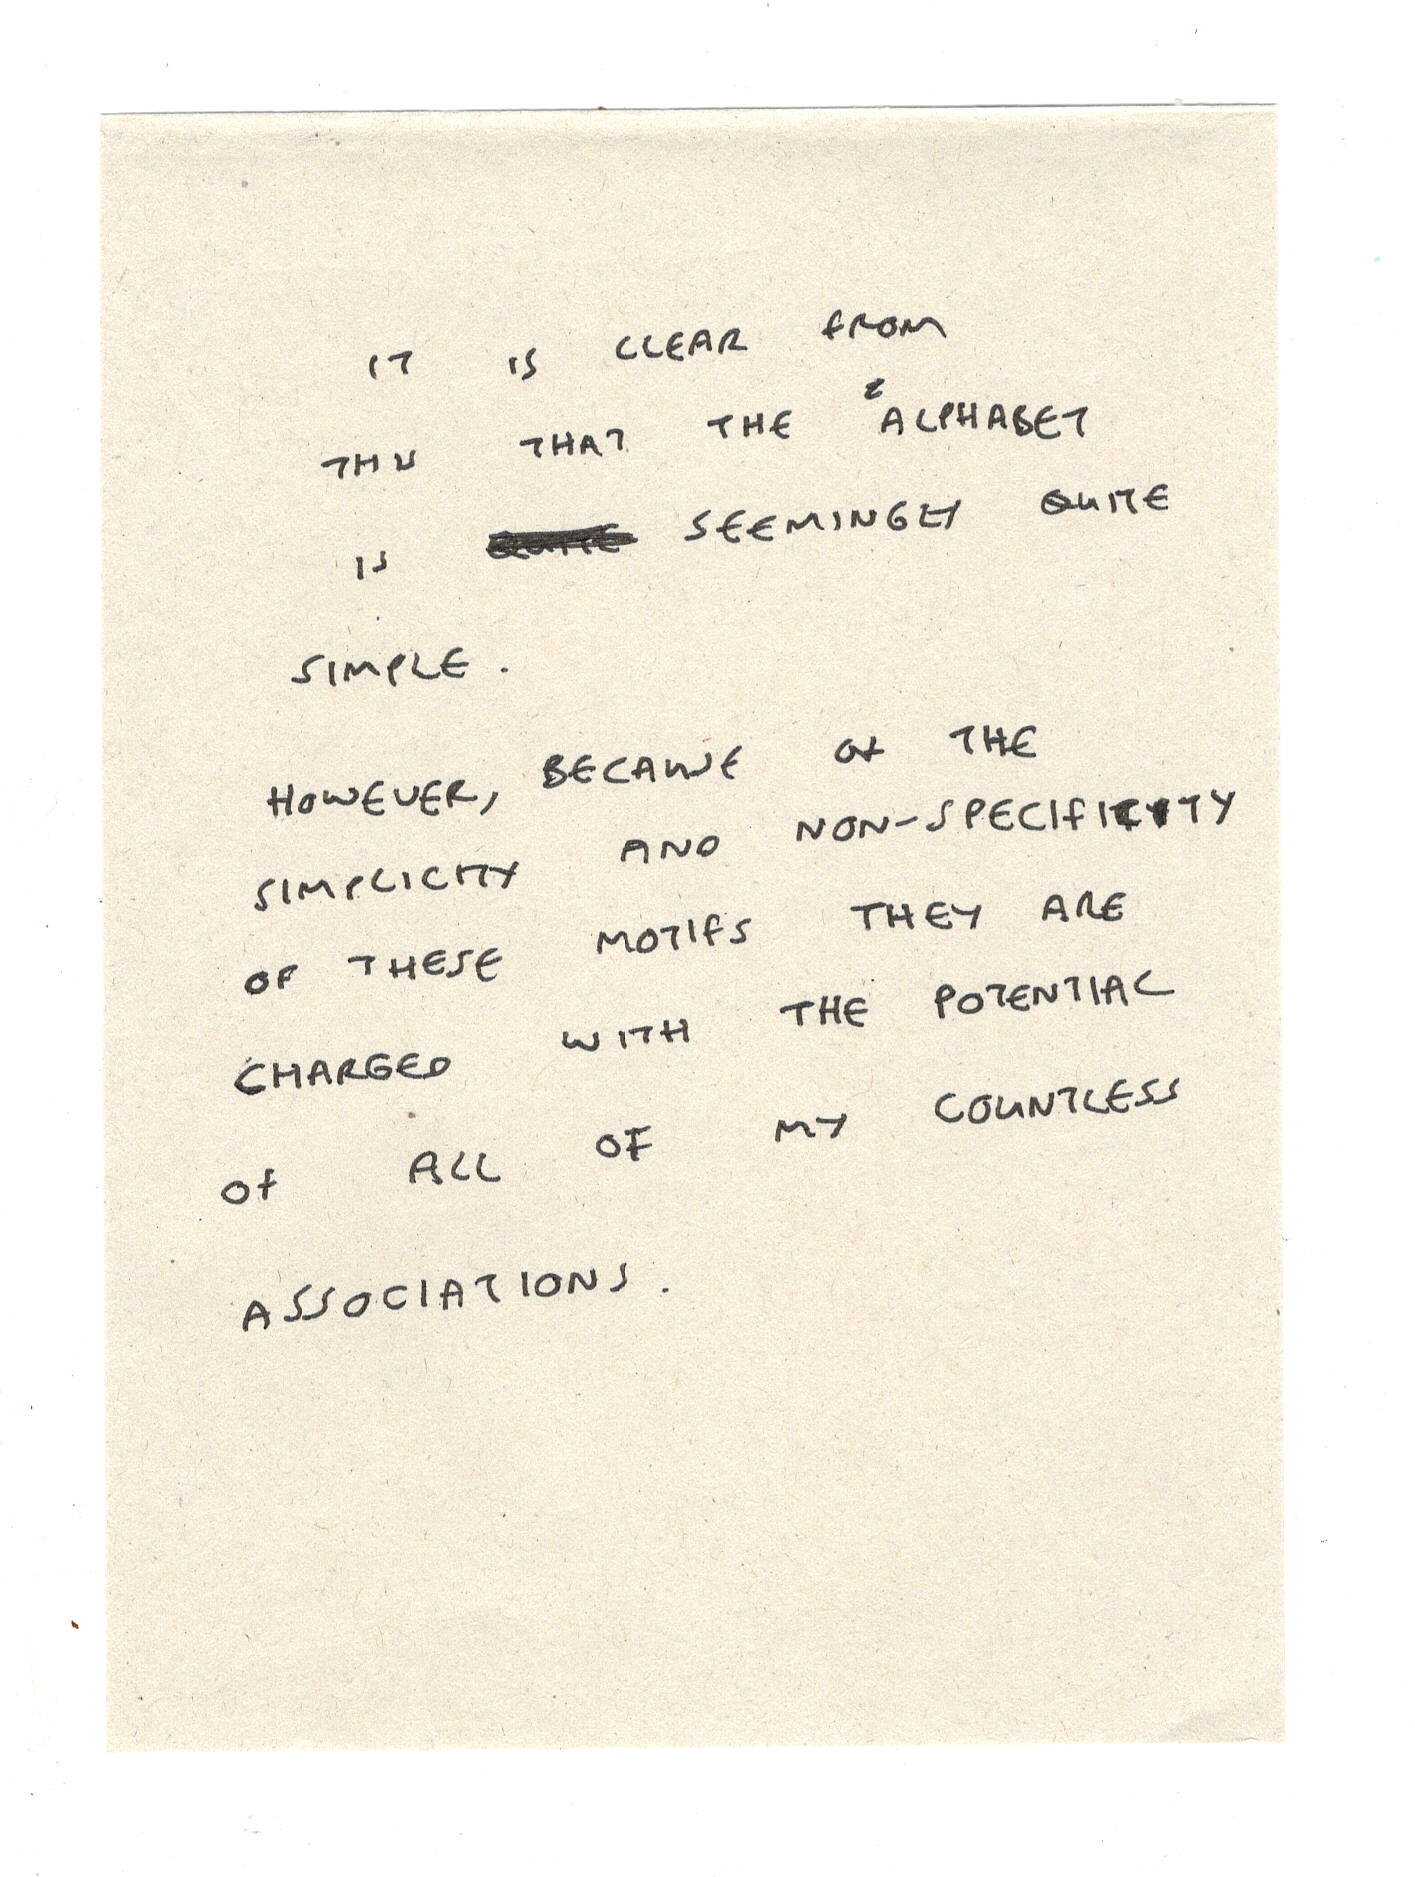 IT IS CLEAR FROM
THIS THAT THE ALPHABET
IS SEEMINGLY QUITE
SIMPLE.
HOWEVER, BECAUSE OF THE
SIMPLICITY AND NON-SPECIFICITY
OF THESE MOTIFS THEY ARE
CHARGED WITH THE POTENTIAL
OF ALL OF MY COUNTLESS
ASSOCIATIONS.